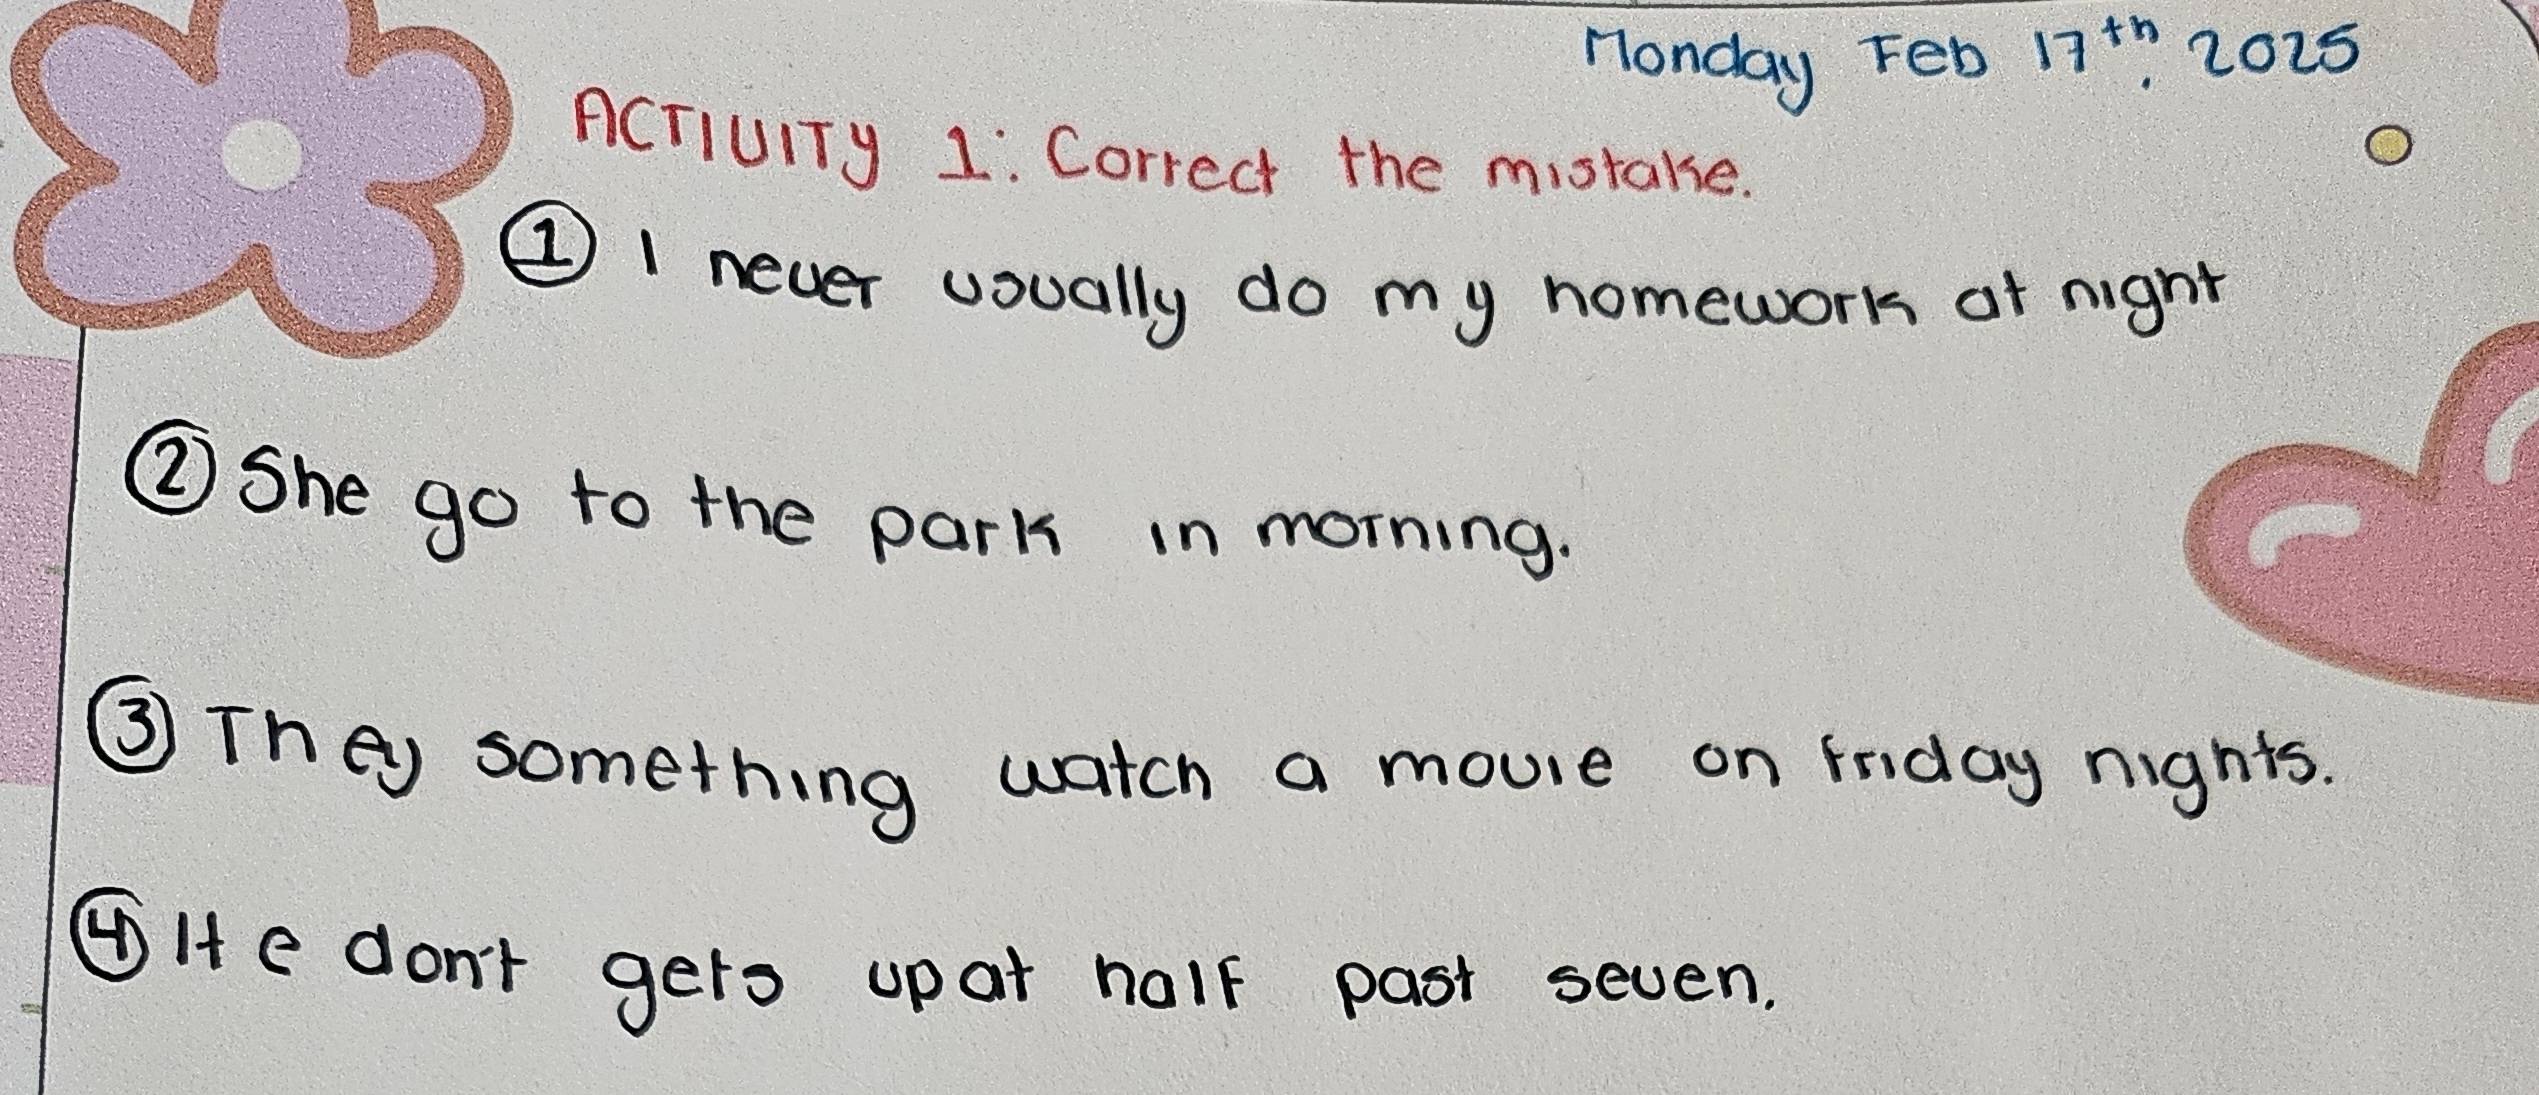 Monday Feb 17th, 2025
ACTIVITY 1: Correct the mistake.
1 I never usually do my homework at night
2 She go to the park in morning.
3 They something watch a movie on friday nights.
4 He don't gets up at half past seven.